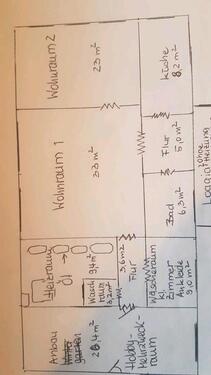 Wohnraum 2
23 m²
Küche
8,2 m²
Wohnraum 1
33 m²
Flur
5,0 m²
Bad
6,3 m²
Heizraum
Öl
9,4 m²
Wasch
raum
3,2 m²
3,6 m²
Flur
Wäscheraum
kl.
Zimmer
Ankleide
9,0 m²
Anbau
28,4 m²
Hobby-
Mehrzweck-
raum
Loggia
ohne
Heizung